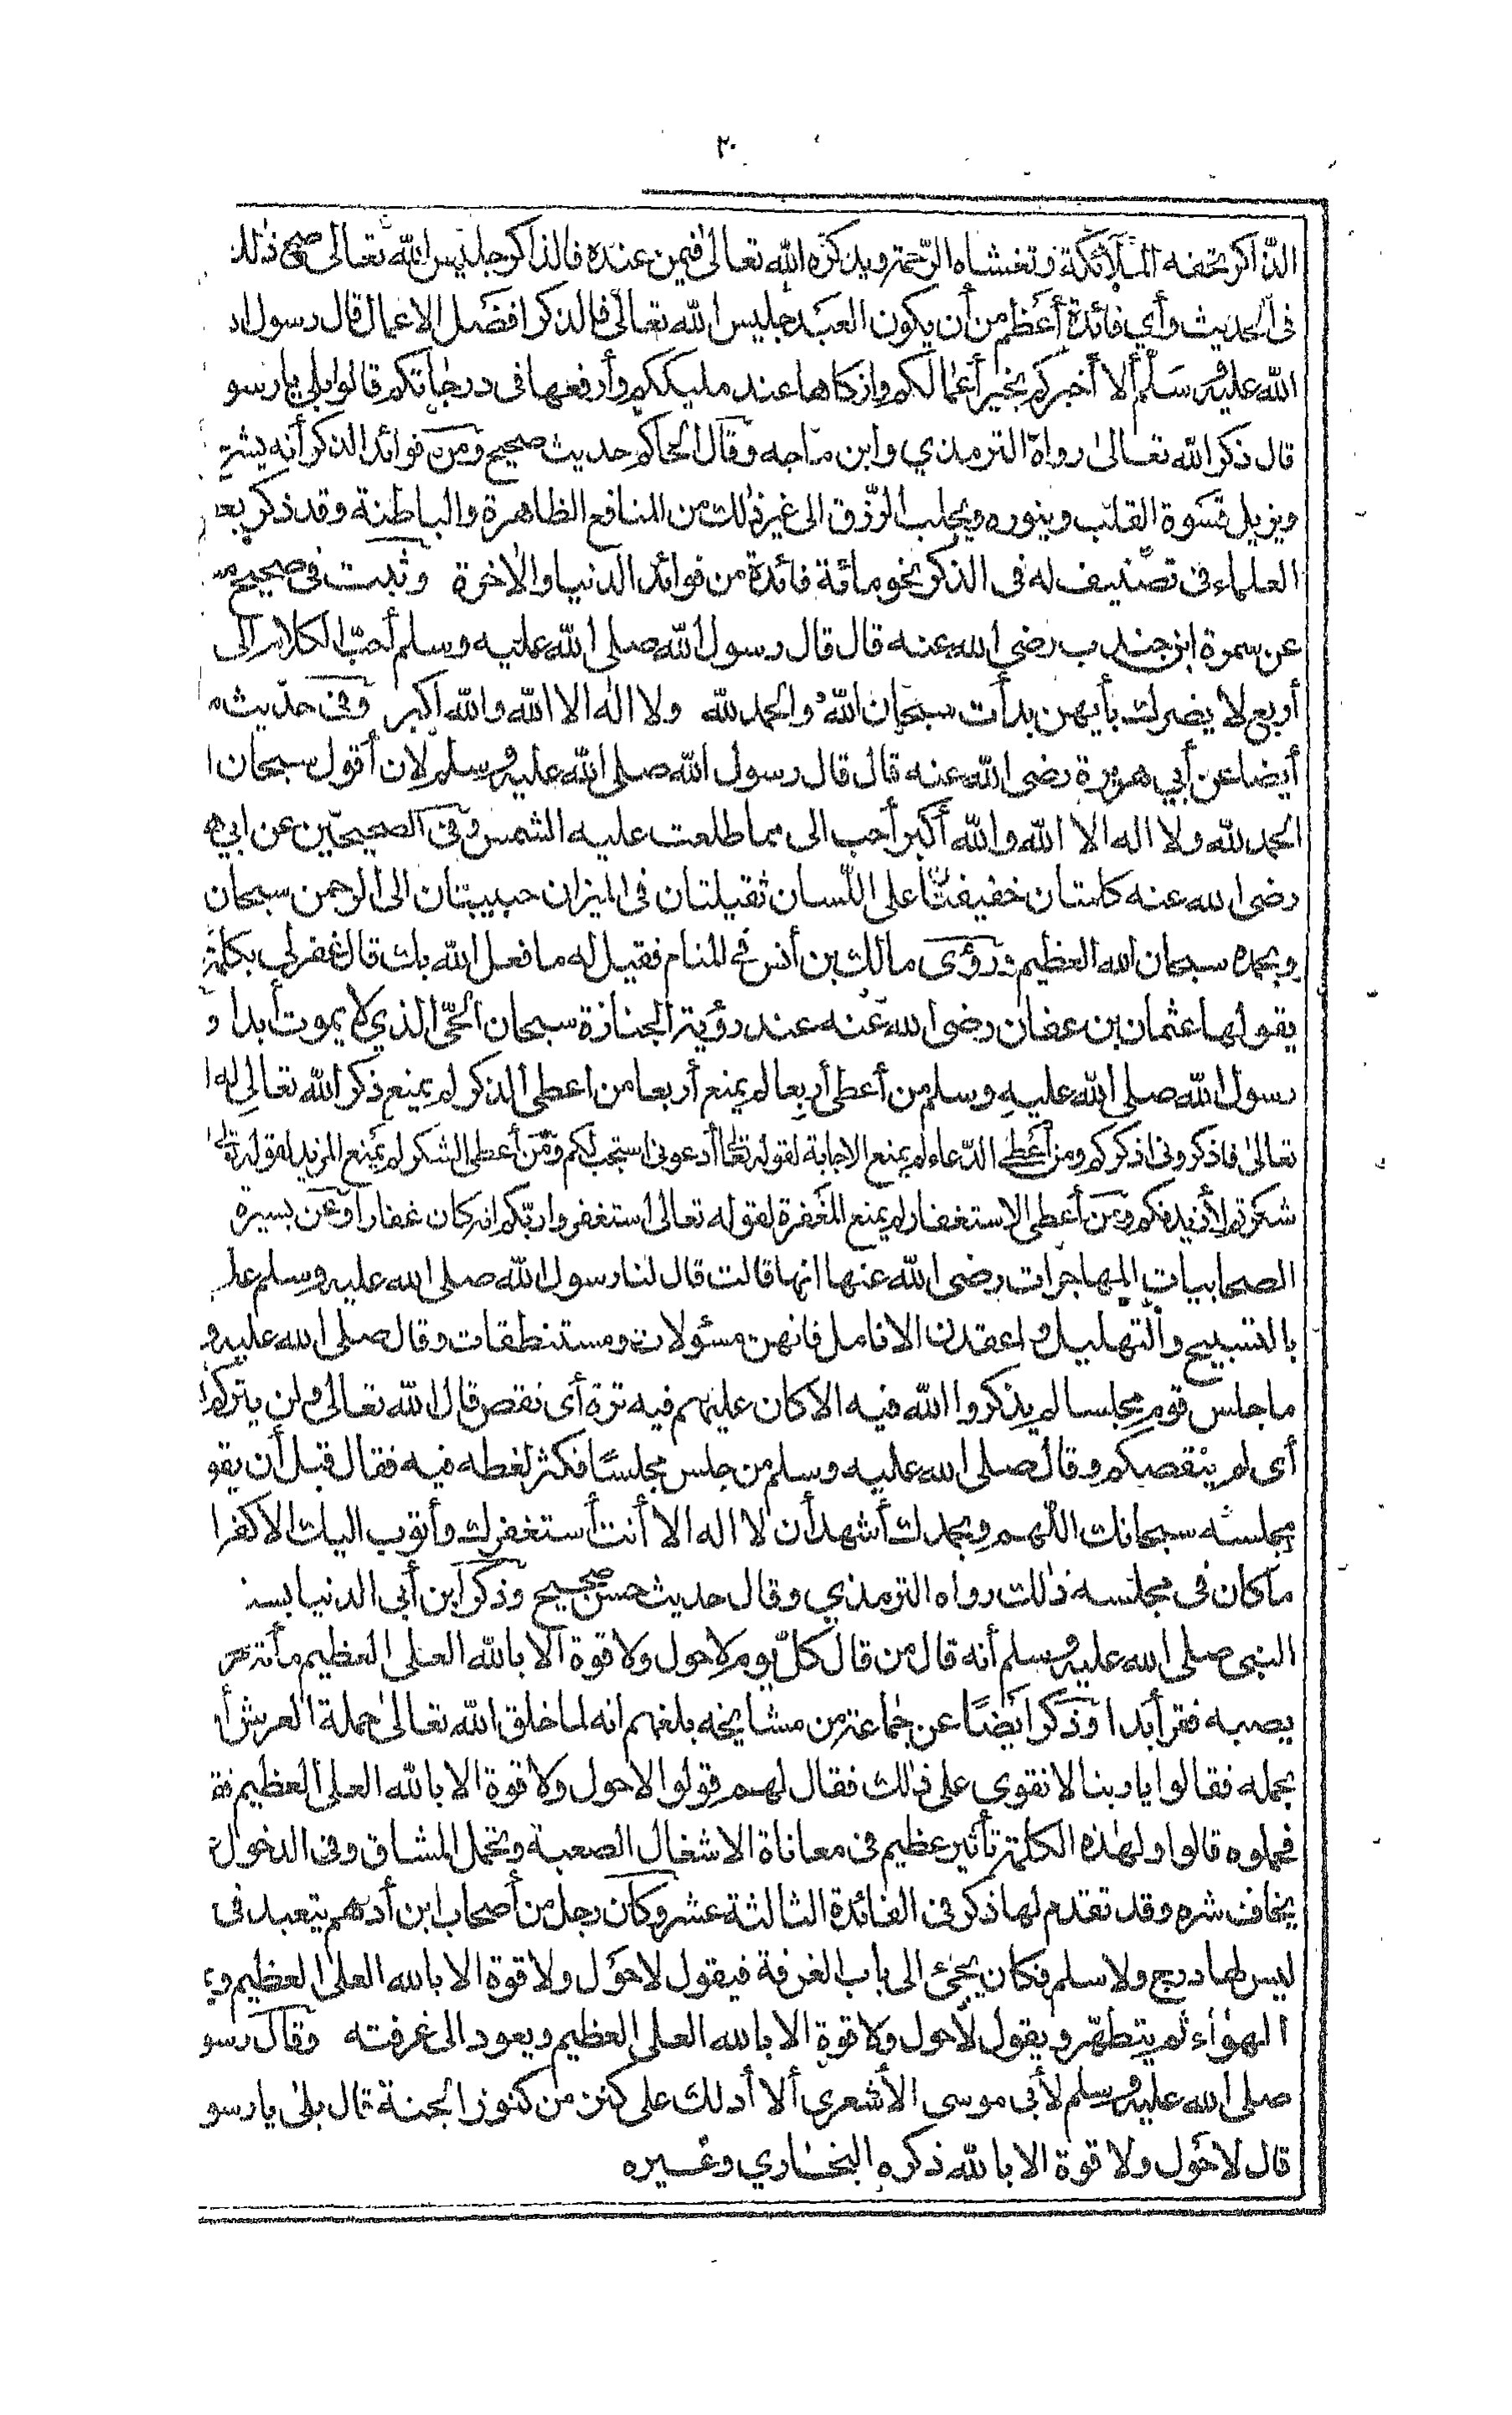 ٢٠
الذاكر تحفه الملائكة وتغشاه الرحمة ويذكره الله تعالى فيمن عنده فالذاكر جليس الله تعالى صح ذلك
في الحديث وأي فائدة أعظم من أن يكون العبد جليس الله تعالى فالذكر افضل الاعمال قال رسول
الله عليه وسلم ألا أخبركم بخير أعمالكم وازكاها عند مليككم وأرفعها في درجاتكم قالوا بلى يا رسو
قال ذكر الله تعالى رواه الترمذي وابن ماجه وقال الحاكم حديث صحيح ومن فوائد الذكر أنه
ويزيل قسوة القلب وينوره ويجلب الرزق الى غير ذلك من المنافع الظاهرة والباطنة وقد ذكر بعـ
العلماء في تصنيف له في الذكر نحو مائة فائدة من فوائد الدنيا والاخرة وثبت في صحيح
عن سمرة ابن جندب رضي الله عنه قال قال رسول الله صلى الله عليه وسلم أحب الكلام الى
أربع لا يضرك بأيهن بدأت سبحان الله والحمد لله ولا اله الا الله والله اكبر وفي حديث
أيضا عن أبي هريرة رضي الله عنه قال قال رسول الله صلى الله عليه وسلم لان أقول سبحان ا
الحمد لله ولا اله الا الله والله أكبر أحب الى مما طلعت عليه الشمس وفي الصحيحين عن ابي هـ
رضي الله عنه كلمتان خفيفتان على اللسان ثقيلتان في الميزان حبيبتان الى الرحمن سبحان
وبحمده سبحان الله العظيم ورؤى مالك بن أنس في المنام فقيل له ما فعل الله بك قال غفر لي بكلمة
يقولها عثمان بن عفان رضي الله عنه عند رؤية الجنازة سبحان الحي الذي لا يموت أبدا و
رسول الله صلى الله عليه وسلم من أعطى أربعا لم يمنع أربعا من اعطى الذكر لم يمنع ذكر الله تعالى له ا
تعالى فاذكروني اذكركم ومن أعطى الدعاء لم يمنع الاجابة لقوله تعالى أدعوني استجب لكم ومن أعطى الشكر لم يمنع المزيد لقوله تعالى
شكرتم لأزيدنكم ومن أعطى الاستغفار لم يمنع المغفرة لقوله تعالى استغفروا ربكم انه كان غفارا وعن يسيرة
الصحابيات المهاجرات رضي الله عنها انها قالت قال لنا رسول الله صلى الله عليه وسلم عليـ
بالتسبيح والتهليل واعقدن الانامل فانهن مسئولات ومستنطقات وقال صلى الله عليه و
ما جلس قوم مجلسا لم يذكروا الله فيه الا كان عليهم فيه ترة أى نقص قال الله تعالى ولن يتركم
أى لم ينقصكم وقال صلى الله عليه وسلم من جلس مجلسا فكثر لغطه فيه فقال قبل أن يقو
مجلسه سبحانك اللهم وبحمدك أشهد أن لا اله الا أنت أستغفرك وأتوب اليك الا كفرا
ما كان في مجلسه ذلك رواه الترمذي وقال حديث حسن صحيح وذكر ابن أبي الدنيا بسنـ
النبي صلى الله عليه وسلم أنه قال من قال كل يوم لا حول ولا قوة الا بالله العلى العظيم مائة
يصبه فقر أبدا وذكر ايضا عن جماعة من مشايخه بلغهم انه لما خلق الله تعالى حملة العرش أ
بحمله فقالوا يا ربنا لا نقوى على ذلك فقال لهم قولوا لا حول ولا قوة الا بالله العلى العظيم فقـ
فحملوه قالوا ولهذه الكلمة تأثير عظيم في معاناة الاشغال الصعبة وتحمل المشاق وفي الدخول
يخاف شره وقد تقدم لها ذكر في الفائدة الثالثة عشر وكان رجل من أصحاب ابن أدهم يتعبد في
ليس لها درج ولا سلم فكان يجئ الى باب الغرفة فيقول لا حول ولا قوة الا بالله العلى العظيم و
الهواء ثم يتطهر ويقول لا حول ولا قوة الا بالله العلى العظيم ويعود الى غرفته وقال رسو
صلى الله عليه وسلم لأبي موسى الأشعري ألا أدلك على كنز من كنوز الجنة قال بلى يا رسو
قال لا حول ولا قوة الا بالله ذكره البخاري وغيره